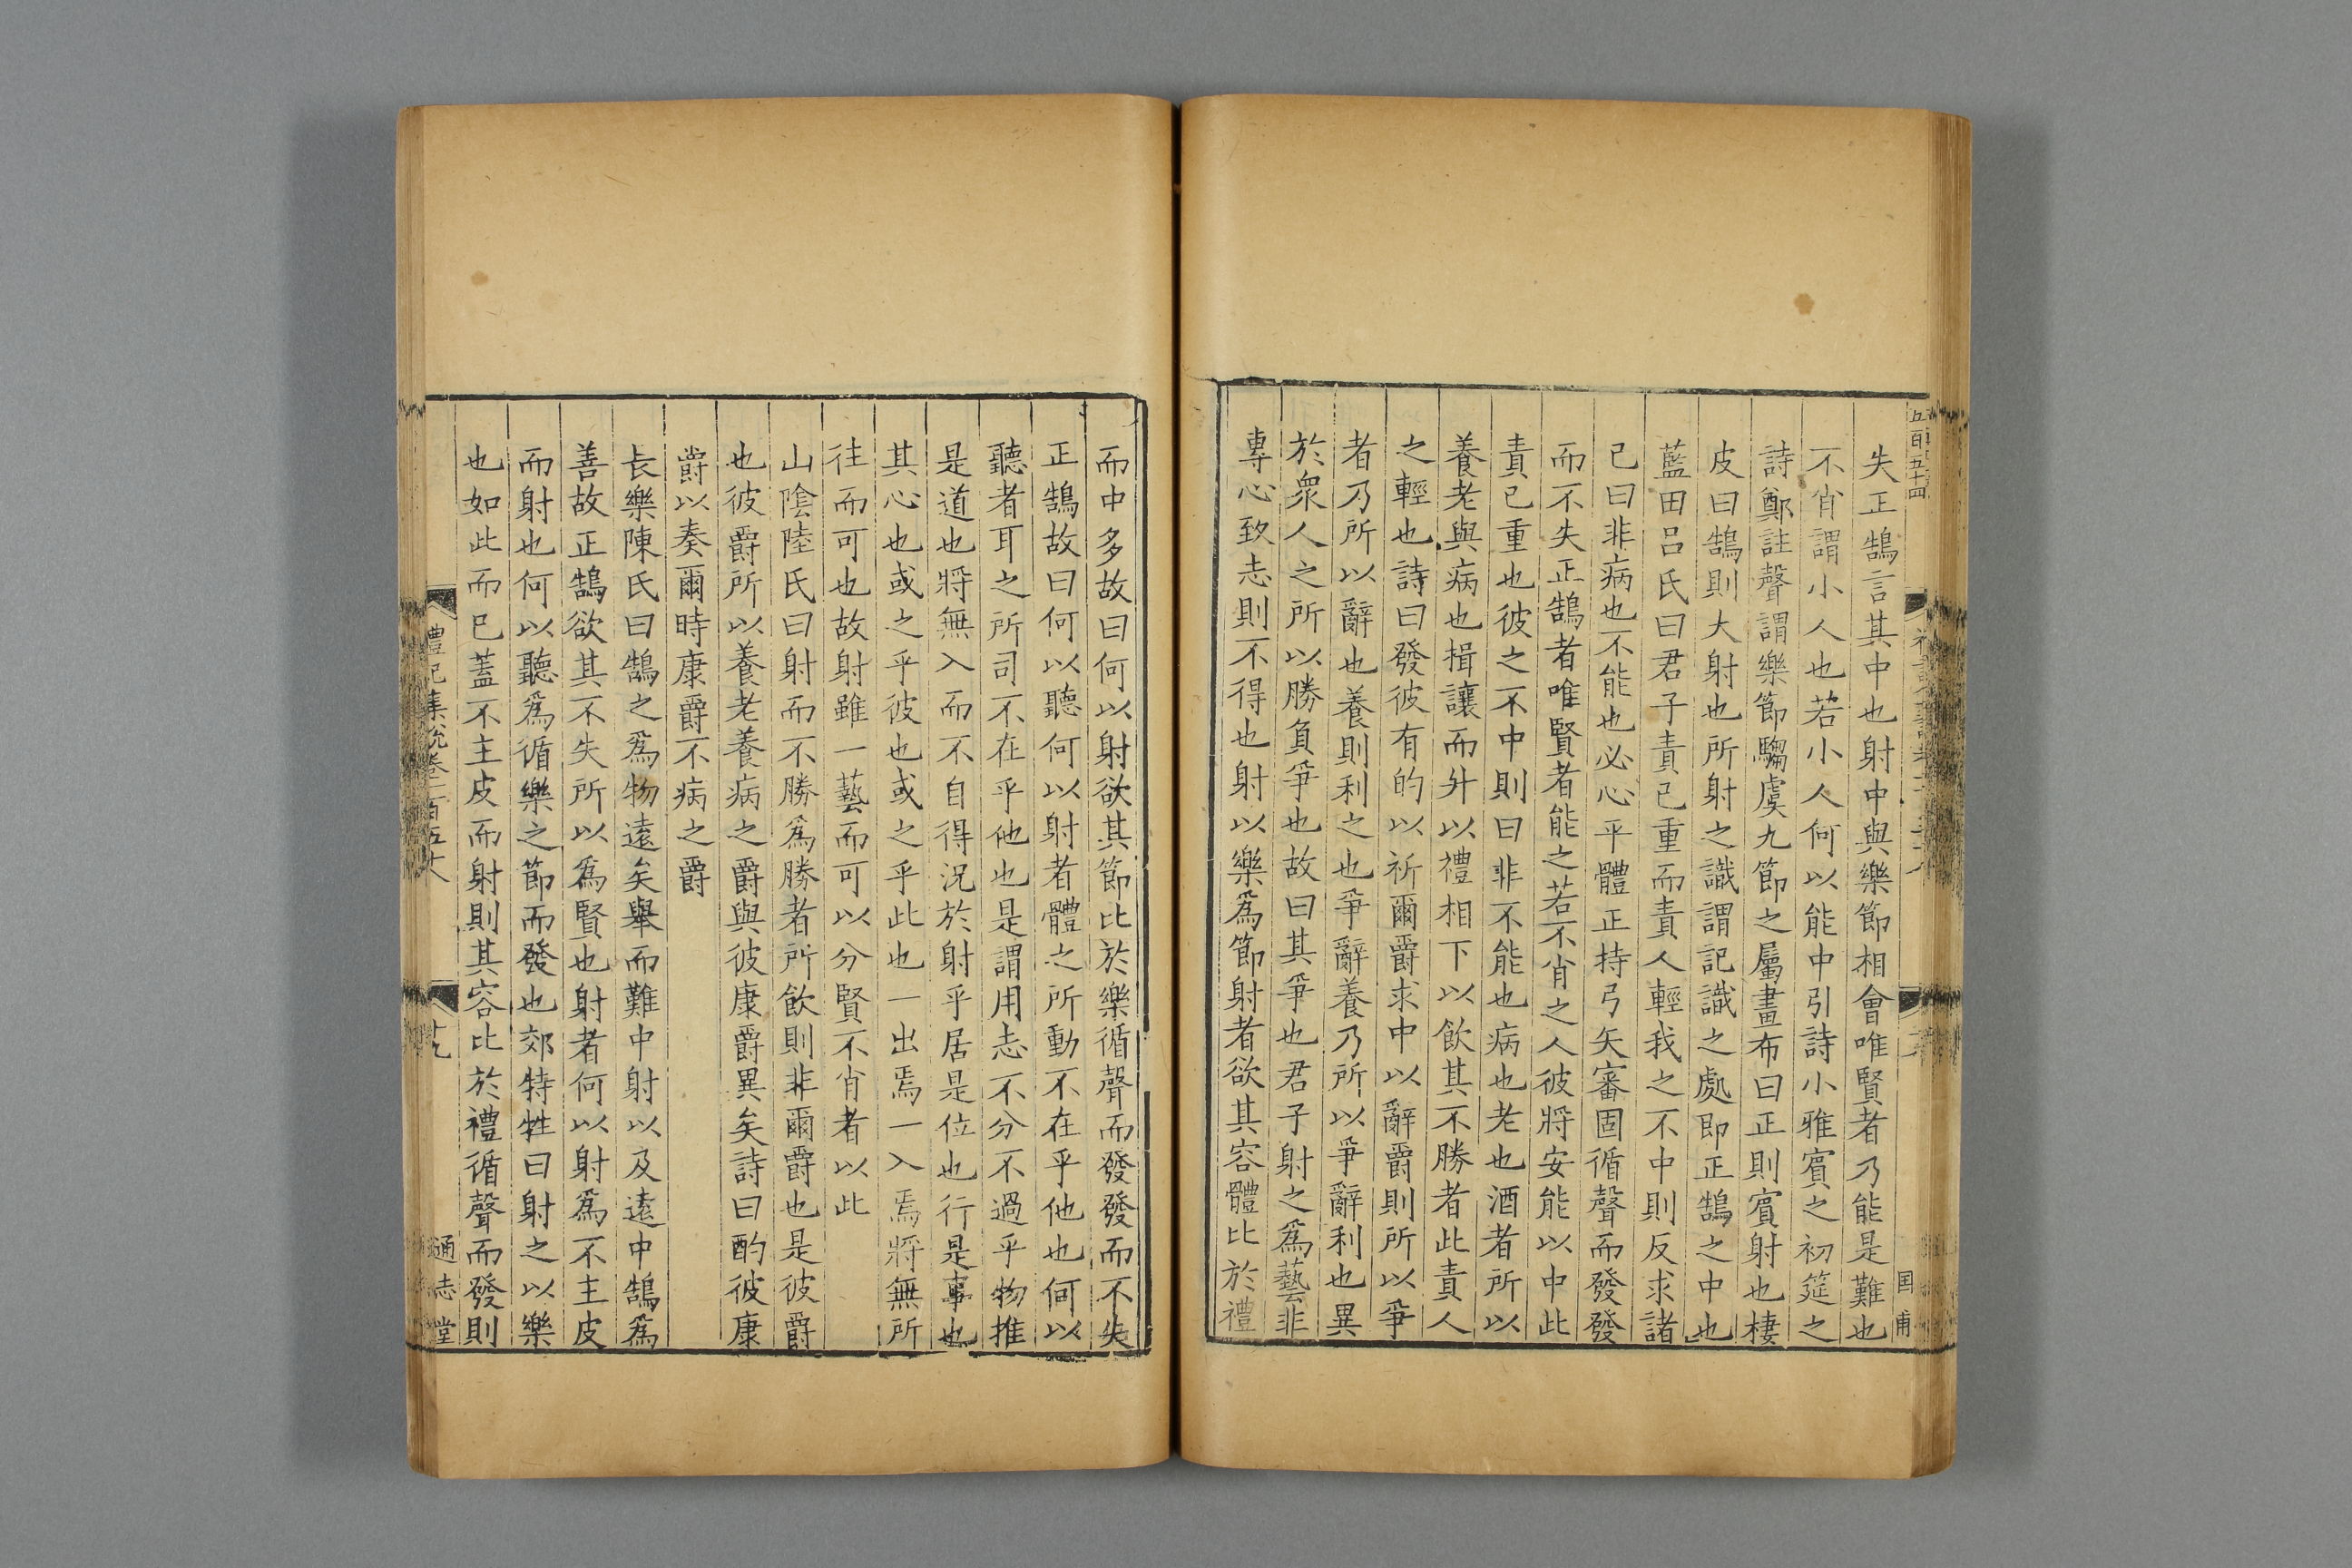 失正鵠言其中也射中與樂節相會唯賢者乃能是難也
不肖謂小人也若小人何以能中引詩小雅賔之初筵之
詩鄭註聲謂樂節騶虞九節之屬畫布曰正則賔射也棲
皮曰鵠則大射也所射之識謂記識之處即正鵠之中也
藍田呂氏曰君子責已重而責人輕我之不中則反求諸
已曰非病也不能也必心平體正持弓矢審固循聲而發發
而不失正鵠者唯賢者能之若不肖之人彼將安能以中此
責已重也彼之不中則曰非不能也病也老也酒者所以
養老與病也揖讓而升以禮相下以飲其不勝者此責人
之輕也詩曰發彼有的以祈爾爵求中以辭爵則所以爭
者乃所以辭也養則利之也爭辭養乃所以爭辭利也異
於衆人之所以勝負爭也故曰其爭也君子射之爲藝非
專心致志則不得也射以樂爲節射者欲其容體比於禮
而中多故曰何以射欲其節比於樂循聲而發發而不失
正鵠故曰何以聽何以射者體之所動不在乎他也何以
聽者耳之所司不在乎他也是謂用志不分不過乎物推
是道也將無入而不自得況於射乎居是位也行是事也
其心也或之乎彼也或之乎此也一出焉一入焉將無所
往而可也故射雖一藝而可以分賢不肖者以此
山陰陸氏曰射而不勝爲勝者所飲則非爾爵也是彼爵
也彼爵所以養老養病之爵與彼康爵異矣詩曰酌彼康
爵以奏爾時康爵不病之爵
長樂陳氏曰鵠之爲物遠矣舉而難中射以及遠中鵠爲
善故正鵠欲其不失所以爲賢也射者何以射爲不主皮
而射也何以聽爲循樂之節而發也郊特牲曰射之以樂
也如此而已蓋不主皮而射則其容比於禮循聲而發則
禮記集說卷一百五十六
通志堂